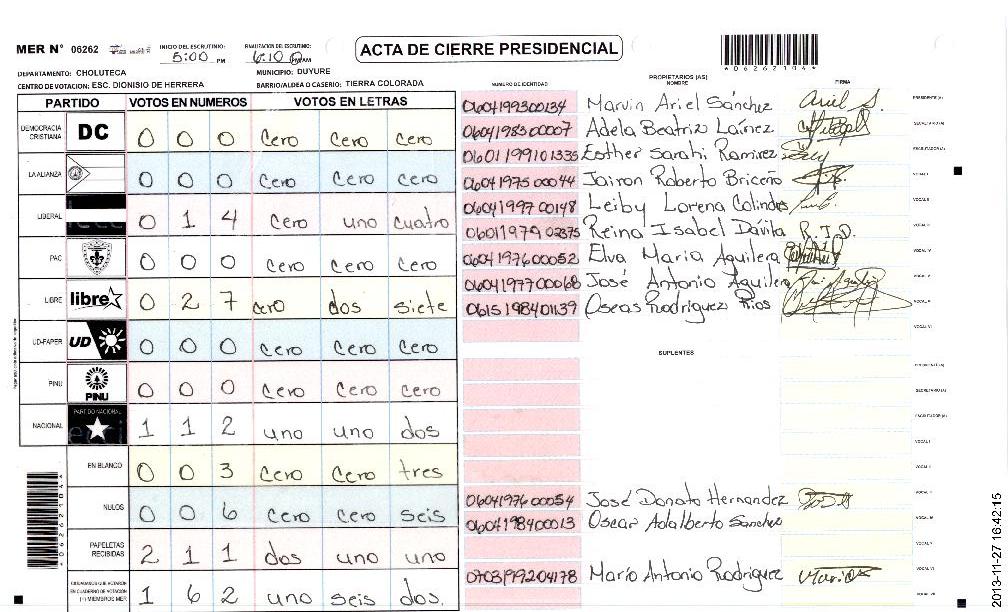 MER N° 06262
INICIO DEL ESCRUTINIO: 5:00 PM
FINALIZACION DEL ESCRUTINIO: 6:10
ACTA DE CIERRE PRESIDENCIAL
*06262104*
DEPARTAMENTO: CHOLUTECA
MUNICIPIO: DUYURE
CENTRO DE VOTACION: ESC. DIONISIO DE HERRERA
BARRIO/ALDEA O CASERIO: TIERRA COLORADA
PARTIDO VOTOS EN NUMEROS VOTOS EN LETRAS
DEMOCRACIA CRISTIANA DC 0 0 0 cero cero cero
LA ALIANZA 0 0 0 cero cero cero
LIBERAL 0 1 4 cero uno cuatro
PAC 0 0 0 cero cero cero
LIBRE libre 0 2 7 cero dos siete
UD-FAPER UD 0 0 0 cero cero cero
PINU PINU 0 0 0 cero cero cero
NACIONAL PARTIDO NACIONAL 1 1 2 uno uno dos
EN BLANCO 0 0 3 cero cero tres
NULOS 0 0 6 cero cero seis
PAPELETAS RECIBIDAS 2 1 1 dos uno uno
CIUDADANOS QUE VOTARON EN CUADERNO DE VOTACION (-) MIEMBROS MER 1 6 2 uno seis dos.
NUMERO DE IDENTIDAD PROPIETARIOS (AS) NOMBRE FIRMA
0604199300134 Marvin Ariel Sánchez Ariel S. PRESIDENTE(A)
0604198500007 Adela Beatriz Laínez SECRETARIO(A)
0601199101335 Esther Sarahi Ramirez ESCRUTADOR(A)
0604197500044 Jairon Roberto Briceño VOCAL I
0604199700148 Leiby Lorena Colindres VOCAL II
0601197902375 Reina Isabel Dávila R.I.D. VOCAL III
0604197600052 Elva Maria Aguilera VOCAL IV
0604197700068 José Antonio Aguilera VOCAL V
0615198401139 Oseas Rodriguez Rios
VOCAL VII
SUPLENTES
PRESIDENTE(A)
SECRETARIO(A)
ESCRUTADOR(A)
VOCAL I
VOCAL II
0604197600054 José Donato Hernandez
0604198400013 Oscar Adalberto Sanchez
VOCAL V
0703197204178 Mario Antonio Rodriguez VOCAL VI
VOCAL VII
*06262104*
2013-11-27 16:42:15